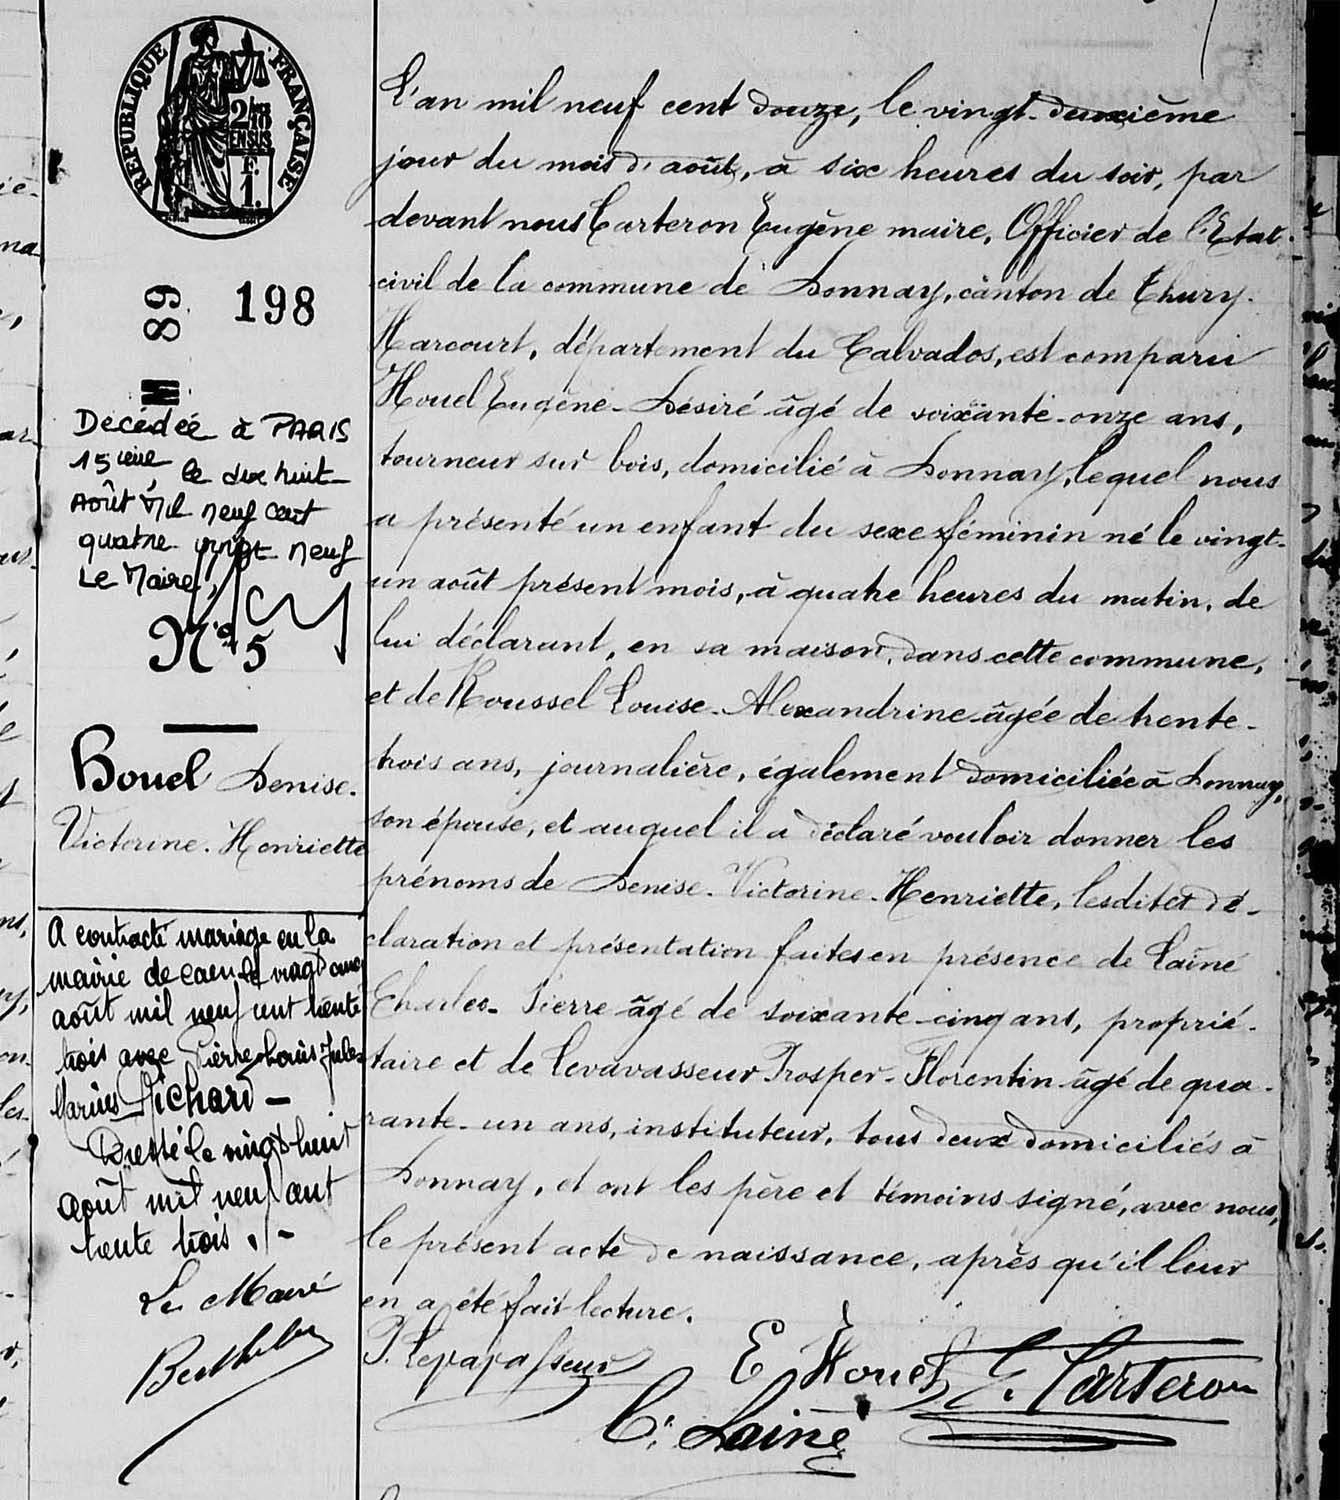 RÉPUBLIQUE FRANÇAISE
2/10
EN SUS
F.
1.
89 198
Décédée à PARIS
15ième, le dix huit
Août Mil neuf cent
quatre vingt neuf
Le Maire,
N° 5
Houel Denise.
Victorine. Henriette
A contracté mariage en la
mairie de Caen le vingt cinq
août mil neuf cent trente
trois avec Pierre Louis Jules
Marius Richard —
Dressé le vingt huit
août mil neuf cent
trente trois. -
Le Maire
L'an mil neuf cent douze, le vingt-deuxième
jour du mois d'août, à six heures du soir, par
devant nous Carteron Eugène maire, Officier de l'Etat-
civil de la commune de Donnay, canton de Thury-
Harcourt, département du Calvados, est comparu
Houel Eugène-Désiré âgé de soixante-onze ans,
tourneur sur bois, domicilié à Donnay, lequel nous
a présenté un enfant du sexe féminin né le vingt-
un août présent mois, à quatre heures du matin, de
lui déclarant, en sa maison, dans cette commune,
et de Roussel Louise-Alexandrine âgée de trente-
trois ans, journalière, également domiciliée à Donnay,
son épouse, et auquel il a déclaré vouloir donner les
prénoms de Denise-Victorine-Henriette, lesdites dé-
claration et présentation faites en présence de Lainé
Charles-Pierre âgé de soixante-cinq ans, proprié-
taire et de Levavasseur Prosper-Florentin âgé de qua-
rante-un ans, instituteur, tous deux domiciliés à
Donnay, et ont les père et témoins signé, avec nous,
le présent acte de naissance, après qu'il leur
en a été fait lecture.
P. Levavasseur E Houel E. Carteron
C. Lainé